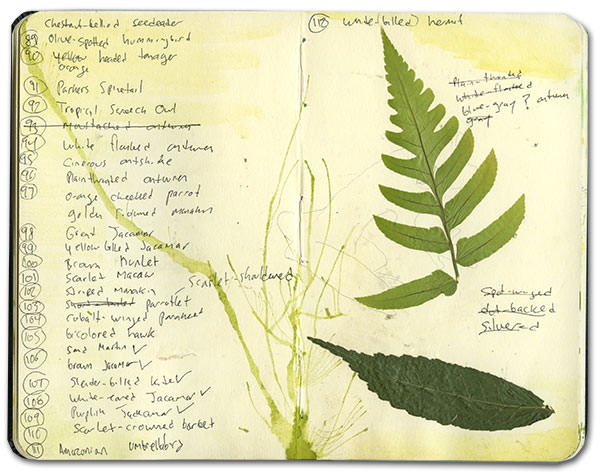 Chestnut-bellied seedeater
89 Olive-spotted hummingbird
90 yellow headed tanager
orange
91 Parkers Spinetail
92 Tropical Screech Owl
93 Moustached antwren
94 White flanked antwren
95 Cinerous antshrike
96 Plainthroated antwren
97 Orange cheeked parrot
golden
98 Great Jacamar
99 Yellow billed Jacamar
100 Brown nunlet
101 Scarlet Macaw
Scarlet-shouldered
102 Striped Manakin
103 parrotlet
104 Cobalt-winged parakeet
105 bicolored hawk
Sand Martin ✓
106 brown Jacamar ✓
107 Slender-billed kite ✓
108 White-eared Jacamar ✓
109 Purplish Jacamar ✓
110 Scarlet-crowned barbet
111 Amazonian umbrellabird
112 white-billed hermit
Plain-throated
white-flanked
blue-gray ? antwren
gray
Spot-winged
dot-backed
Silvered